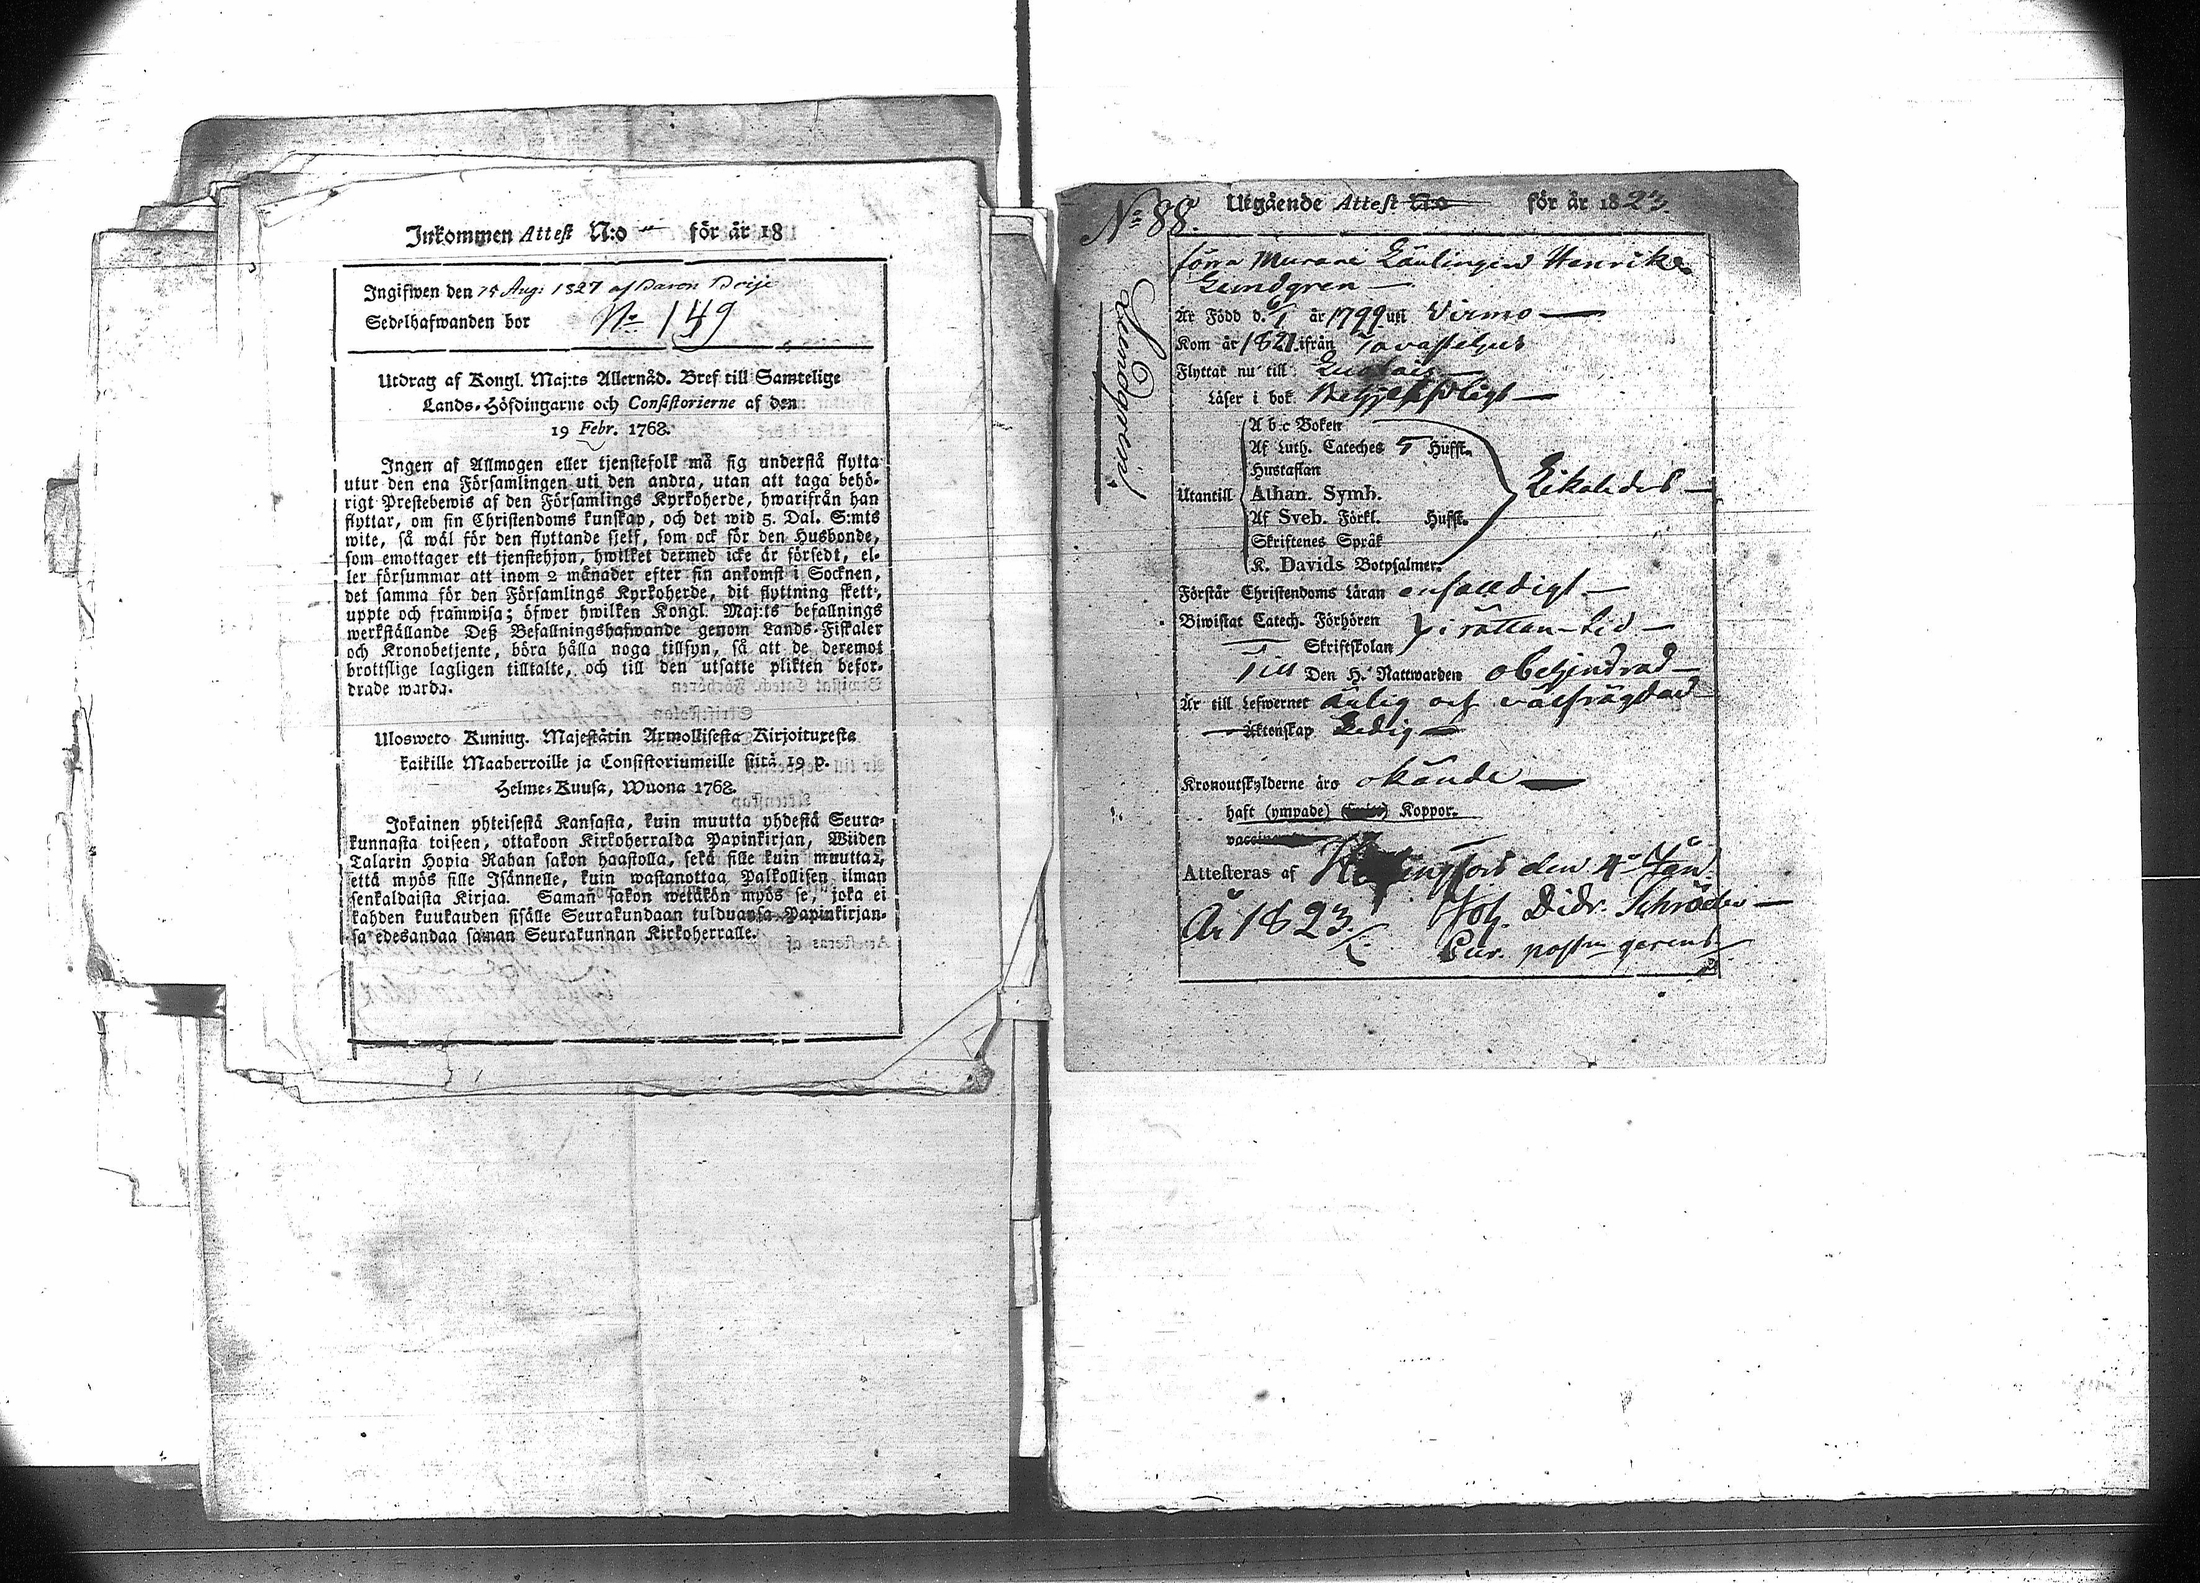 Inkommen Attest N:o för år 18
Ingifwen den 15 Aug: 1827 af
Sedelhafwanden bor No 149
Utdrag af Kongl. Maj:ts Allernåd. Bref till Samtelige
Lands-Höfdingarne och Consistorierne af den
19 Febr. 1768.
Ingen af Allmogen eller tjenstefolk må sig understå flytta
utur den ena Församlingen uti den andra, utan att taga behö-
rigt Prestebewis af den Församlings Kyrkoherde, hwarifrån han
flyttar, om sin Christendoms kunskap, och det wid 5. Dal. S:mts
wite, så wäl för den flyttande sjelf, som ock för den Husbonde,
som emottager ett tjenstehjon, hwilket dermed icke är försedt, el-
ler försummar att inom 2 månader efter sin ankomst i Socknen,
det samma för den Församlings Kyrkoherde, dit flyttning skett,
uppte och framwisa; öfwer hwilken Kongl. Maj:ts befallnings
werkställande Deß Befallningshafwande genom Lands-Fiskaler
och Kronobetjente, böra hålla noga tillsyn, så att de deremot
brottslige lagligen tilltalte, och till den utsatte plikten befor-
drade warda.
Ulosweto Kuning. Majestätin Armollisesta Kirjoituxesta
kaikille Maaherroille ja Consistoriumeille siitä 19 p.
Helme-Kuusa, Wuona 1768.
Jokainen yhteisestä Kansasta, kuin muutta yhdestä Seura-
kunnasta toiseen, ottakoon Kirkoherralda Papinkirjan, Wiiden
Talarin Hopia Rahan sakon haastolla, sekä sille kuin muuttaa,
että myös sille Isännelle, kuin wastanottaa Palkollisen ilman
senkaldaista Kirjaa. Saman sakon wetäkön myös se, joka ei
kahden kuukauden sisälle Seurakundaan tulduansa Papinkirjan-
sa edesandaa saman Seurakunnan Kirkoherralle.
No 88. Utgående Attest No för år 1823.
Lundgren
förra Henrik
Lundgren
Är Född d. 6/1 år 1799 uti Virmo
Kom år 1821 ifrån Tavastehus
Flyttar nu till
Läser i bok
A b c Boken
Af Luth. Cateches 5 Hufst.
Hustaflan
Utantill Athan. Symb. Likaledes
Af Sveb. Förkl. Hufst.
Skriftenes Språk
K. Davids Botpsalmer.
Förstår Christendoms Läran enfaldigt
Biwistat Catech. Förhören i rättan tid
Skriftskolan
Till Den H. Nattwarden obehindrad
Är till Lefwernet ärlig och välfrägdad
Äktenskap Ledig
Kronoutskylderne äro okände
haft (ympade) Koppor.
Attesteras af Helsingfors den 4 Jan.
År 1823. Joh. Didr. Schröder